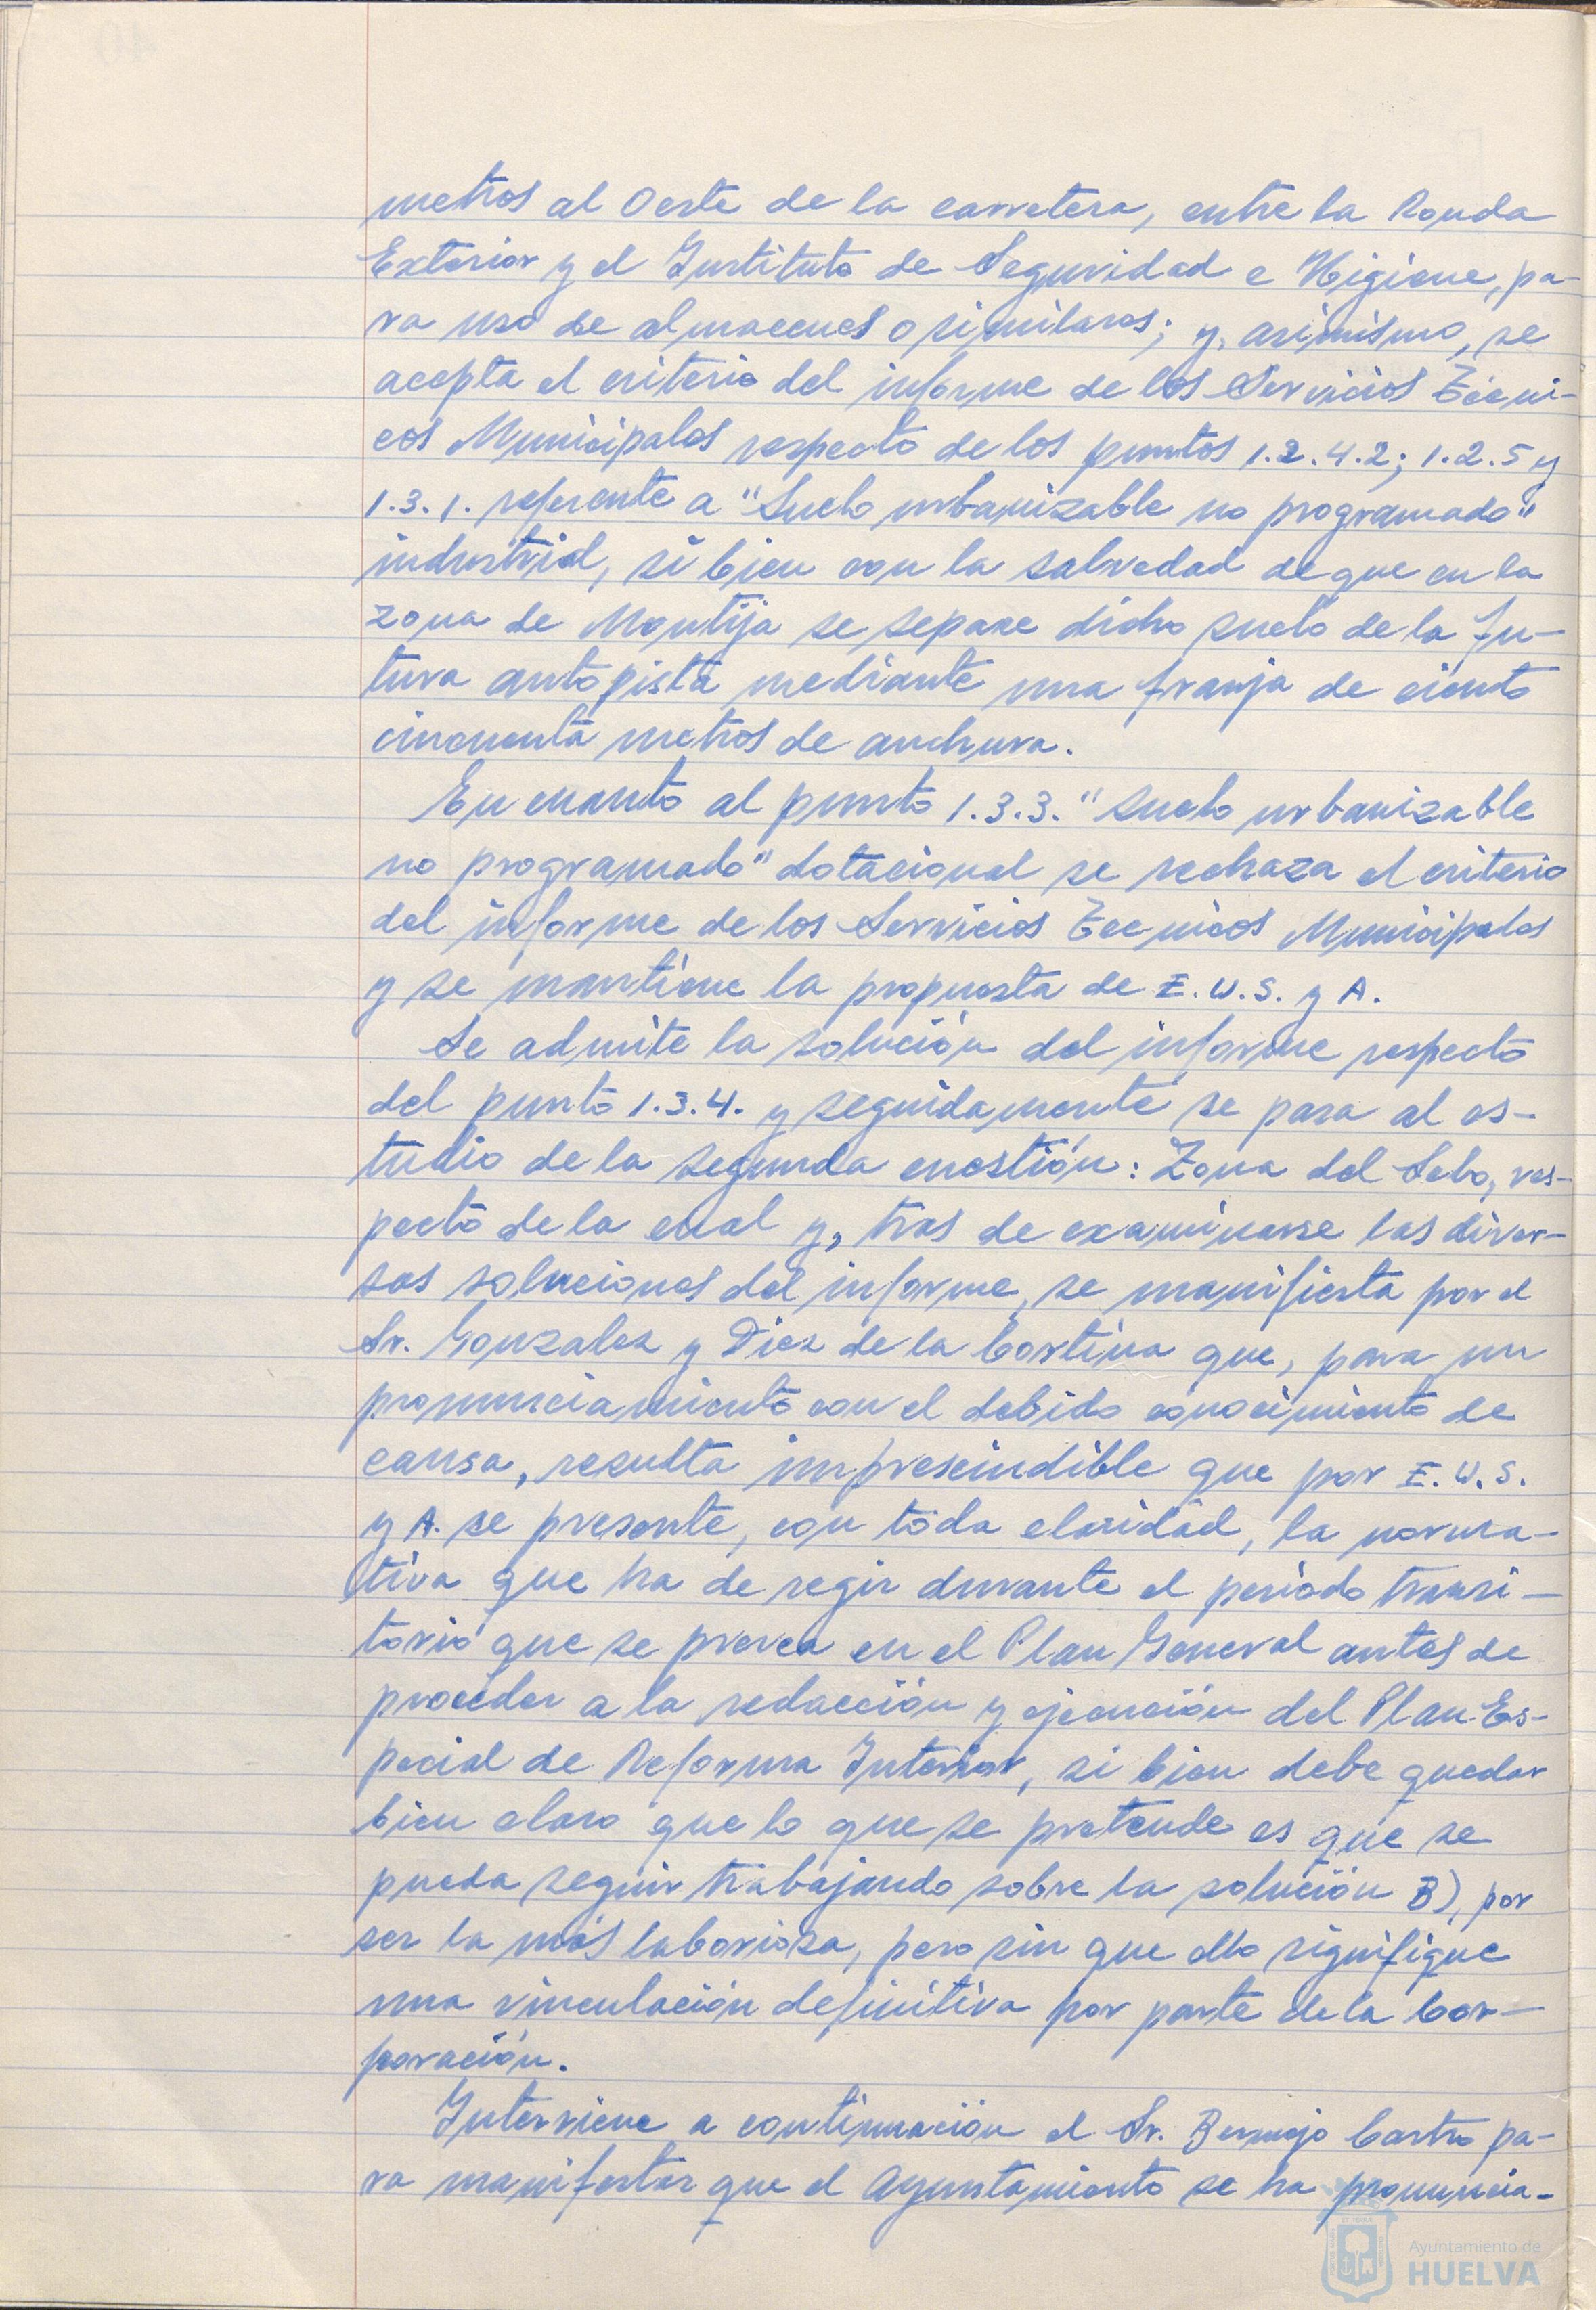 metros al Oeste de la carretera, entre la Ronda
Exterior y el Instituto de Seguridad e Higiene, pa-
ra uso de almacenes o similares; y, asimismo, se
acepta el criterio del informe de los Servicios Técni-
cos Municipales respecto de los puntos 1.2.4.2; 1.2.5 y
1.3.1. referente a "Suelo urbanizable no programado"
industrial, si bien con la salvedad de que en la
zona de Montija se separe dicho suelo de la fu-
tura autopista mediante una franja de ciento
cincuenta metros de anchura.
En cuanto al punto 1.3.3. "suelo urbanizable
no programado" dotacional se rechaza el criterio
del informe de los Servicios Tecnicos Municipales
y se mantiene la propuesta de E.W.S. y A.
Se admite la solución del informe respecto
del punto 1.3.4. y seguidamente se pasa al es-
tudio de la segunda cuestión: Zona del Sebo, res-
pecto de la cual y, tras de examinarse las diver-
sas soluciones del informe, se manifiesta por el
Sr. Gonzalez y Diez de la Cortina que, para un
pronunciamiento con el debido conocimiento de
causa, resulta imprescindible que por E.W.S.
y A. se presente, con toda claridad, la norma-
tiva que ha de regir durante el período transi-
torio que se prevea en el Plan General antes de
proceder a la redacción y ejecución del Plan Es-
pecial de Reforma Interior, si bien debe quedar
bien claro que lo que se pretende es que se
pueda seguir trabajando sobre la solución B), por
ser la más laboriosa, pero sin que ello signifique
una vinculación definitiva por parte de la Cor-
poración.
Interviene a continuación el Sr. Bermejo Castro pa-
ra manifestar que el Ayuntamiento se ha pronuncia-
Ayuntamiento de
HUELVA